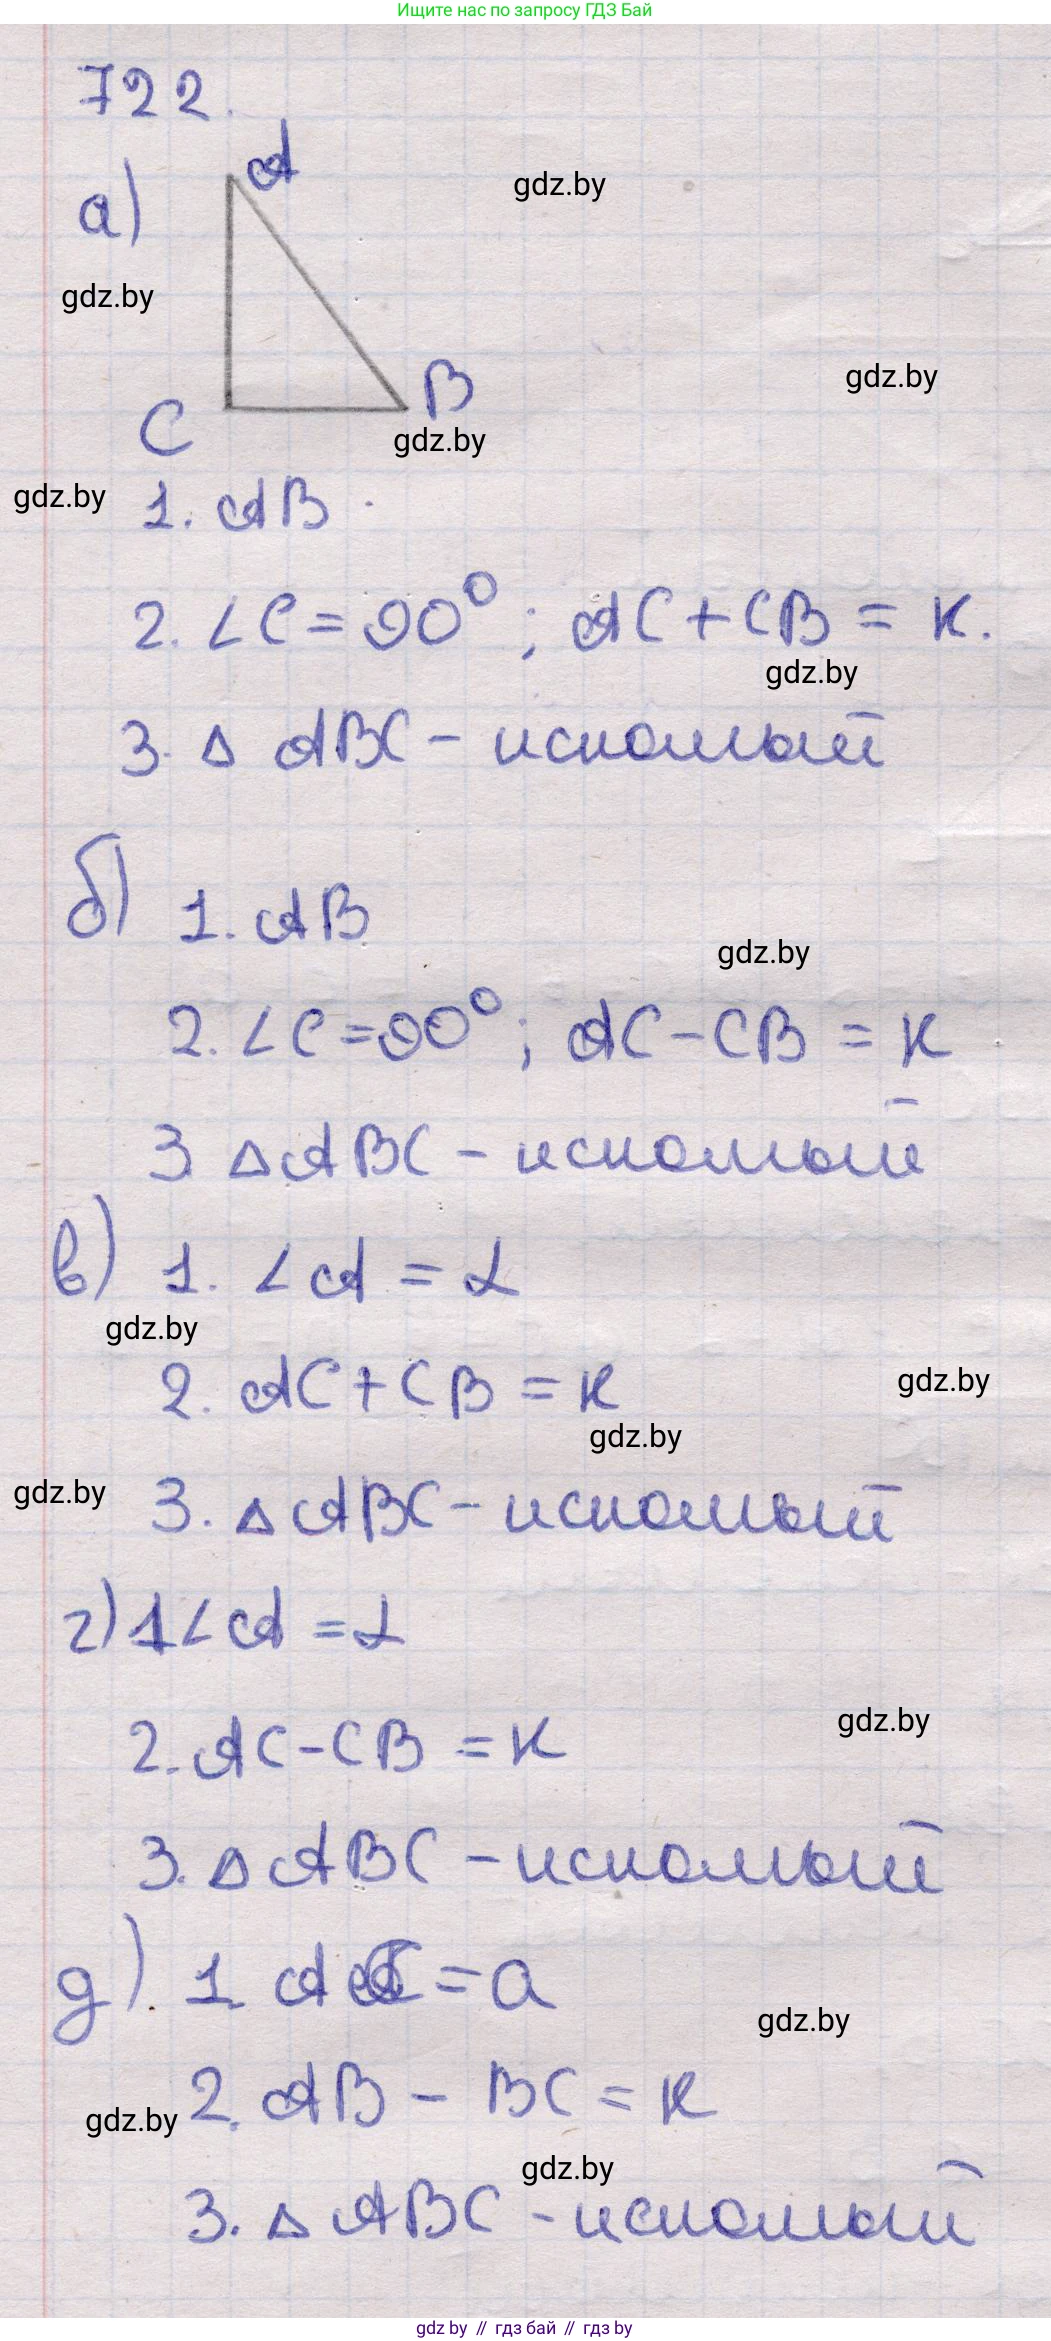 Ищите нас по запросу ГДЗ Бай
722.
A
а)
gdz.by
gdz.by
gdz.by
B
C
gdz.by
gdz.by
1. AB
2. ∠C = 90°; AC + CB = К.
gdz.by
3. △ ABC - искомый
б) 1. AB
gdz.by
2. ∠C = 90°; AC - CB = К
3 △ ABC - искомый
в) 1. ∠A = α
gdz.by
2. AC + CB = К
gdz.by
gdz.by
gdz.by
3. △ ABC - искомый
г) 1 ∠A = α
gdz.by
2. AC - CB = К
3. △ ABC - искомый
д) 1. AC = a
gdz.by
2. AB - BC = К
gdz.by
gdz.by
3. △ ABC - искомый
gdz by // гдз бай // гдз by